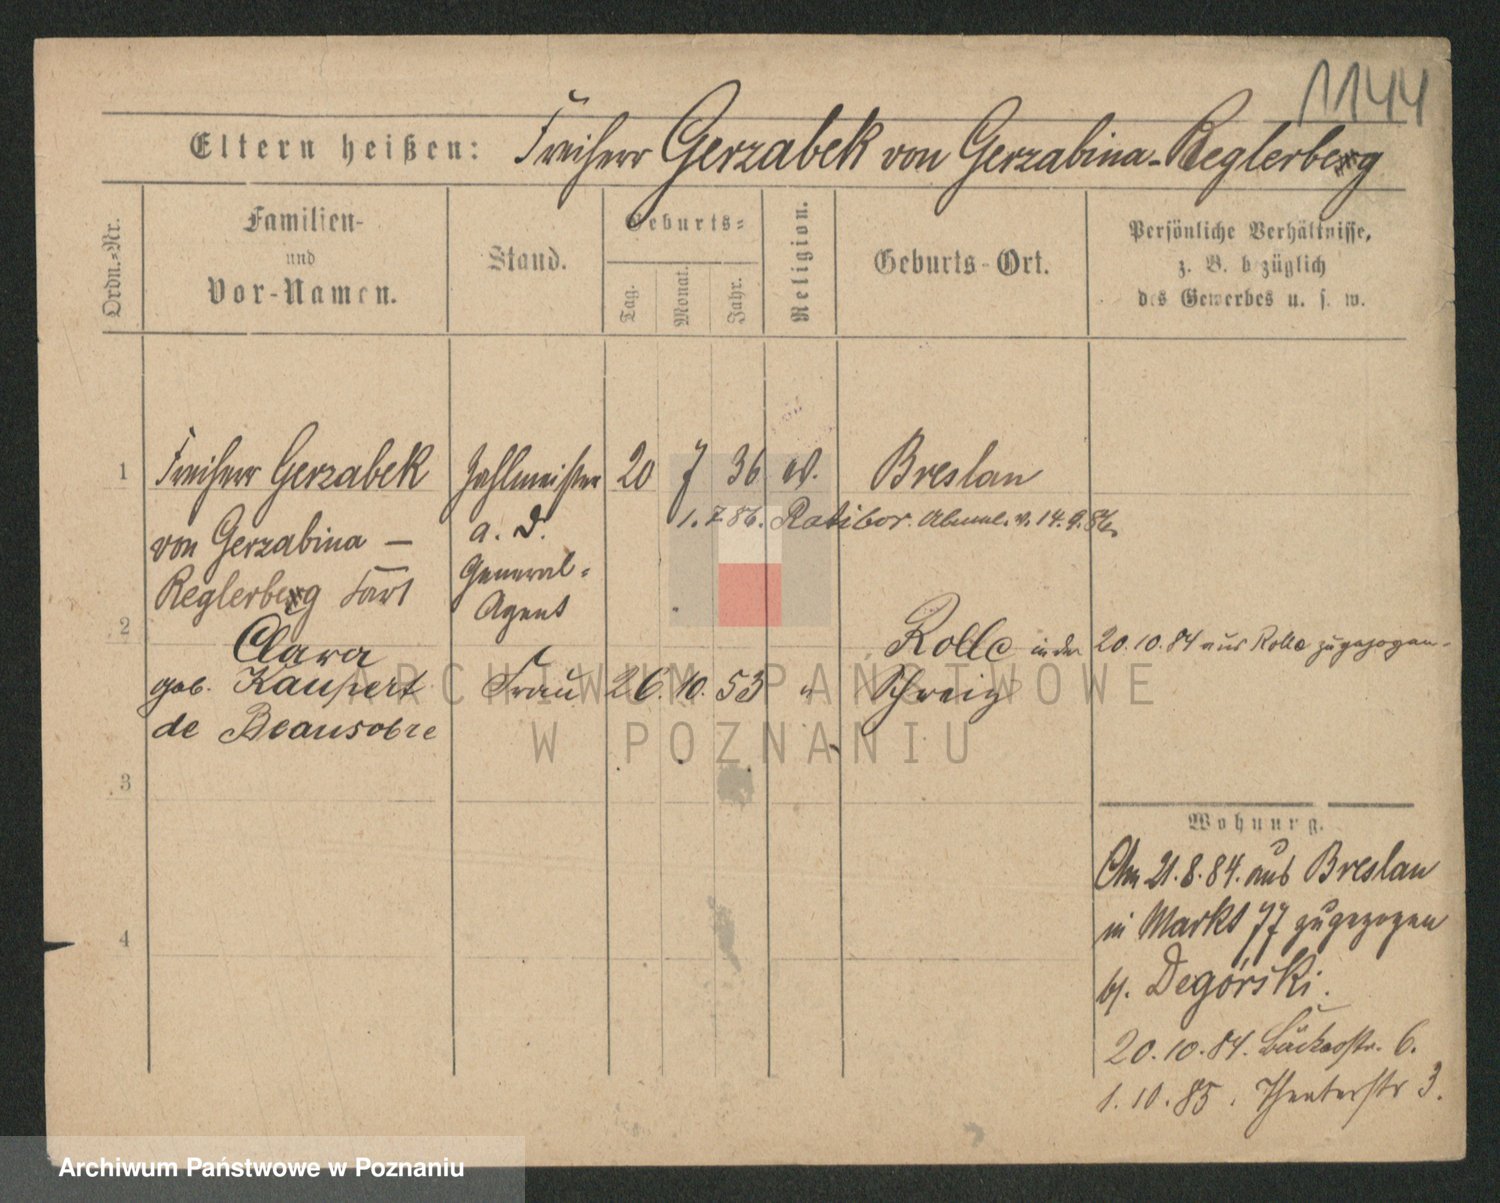 1144
Eltern heißen: Freiherr Gerzabek von Gerzabina-Reglerberg
Ordn.-Nr.
Familien-
und
Vor-Namen.
Stand.
Geburts-
Tag.
Monat.
Jahr.
Religion.
Geburts-Ort.
Persönliche Verhältnisse,
z. B. bezüglich
des Gewerbes u. s. w.
1 Freiherr Gerzabek Zahlmeister 20 7 36 ev. Breslau
1.7.86. Ratibor. Abmel. v. 14.9.86.
von Gerzabina — a. D.
Reglerberg Carl General-
Agent
2
Clara Rolle in der 20.10.84 aus Rolle zugezogen.
geb. Kaupert Frau 26. 10. 53 " Schweiz
de Beausobre
3
Wohnung.
Am 21.8.84. aus Breslau
in Markt 77 zugezogen
4
b/. Degórski.
20.10.84. Bäckerstr. 6.
1.10.85. Theaterstr 3.
ARCHIWUM PAŃSTWOWE
W POZNANIU
Archiwum Państwowe w Poznaniu